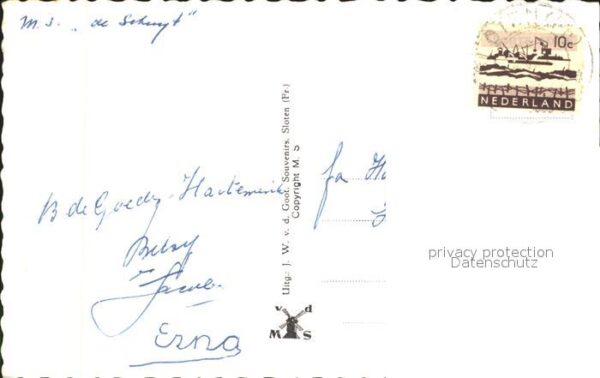 M.S. „de Schuyt"
10c
NEDERLAND
B de Goede-
Betsy
Jacob
Erna
fa H
Uitg.: J. W. v. d. Goot. Souvenirs. Sloten (Fr.)
Copyright M. S
v d
M S
privacy protection
Datenschutz